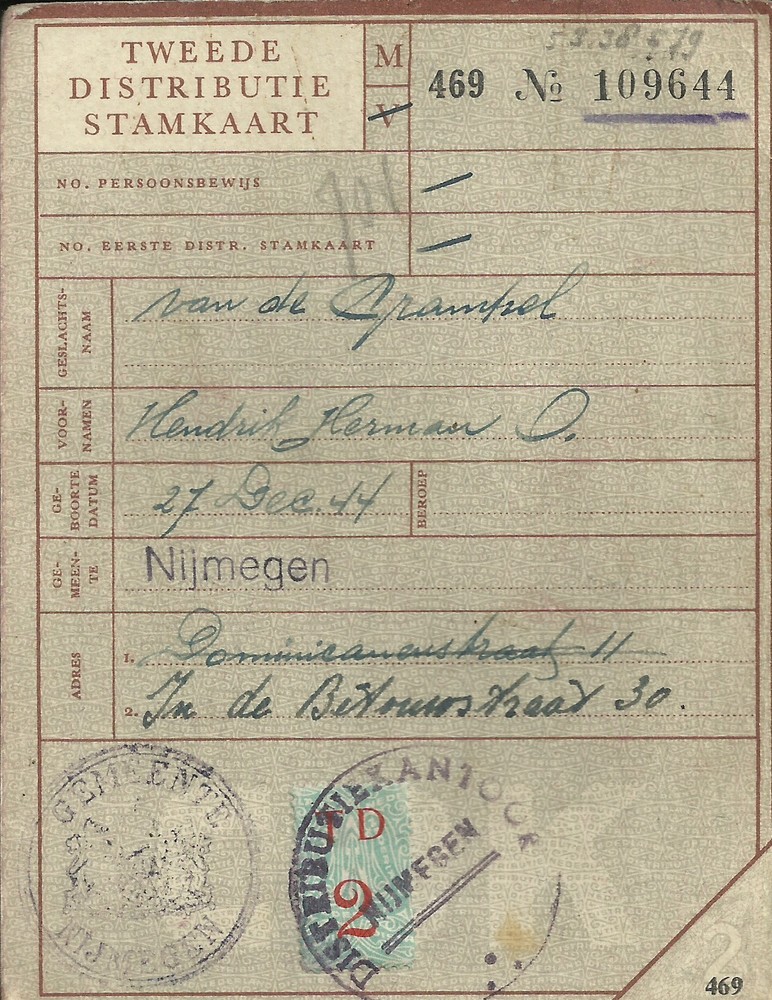 TWEEDE
DISTRIBUTIE
STAMKAART
M
V
53.38
469 No 109644
NO. PERSOONSBEWIJS
701
NO. EERSTE DISTR. STAMKAART
GESLACHTS-
NAAM
van de Grampel
VOOR-
NAMEN
Hendrik Herman O.
GE-
BOORTE
DATUM
27 Dec. 44
BEROEP
GE-
MEEN-
TE
Nijmegen
ADRES
1. Dominicanenstraat 11
2. In de Betouwstraat 30.
GEMEENTE
NIJMEGEN
TD
2
DISTRIBUTIEKANTOOR
NIJMEGEN
2
469